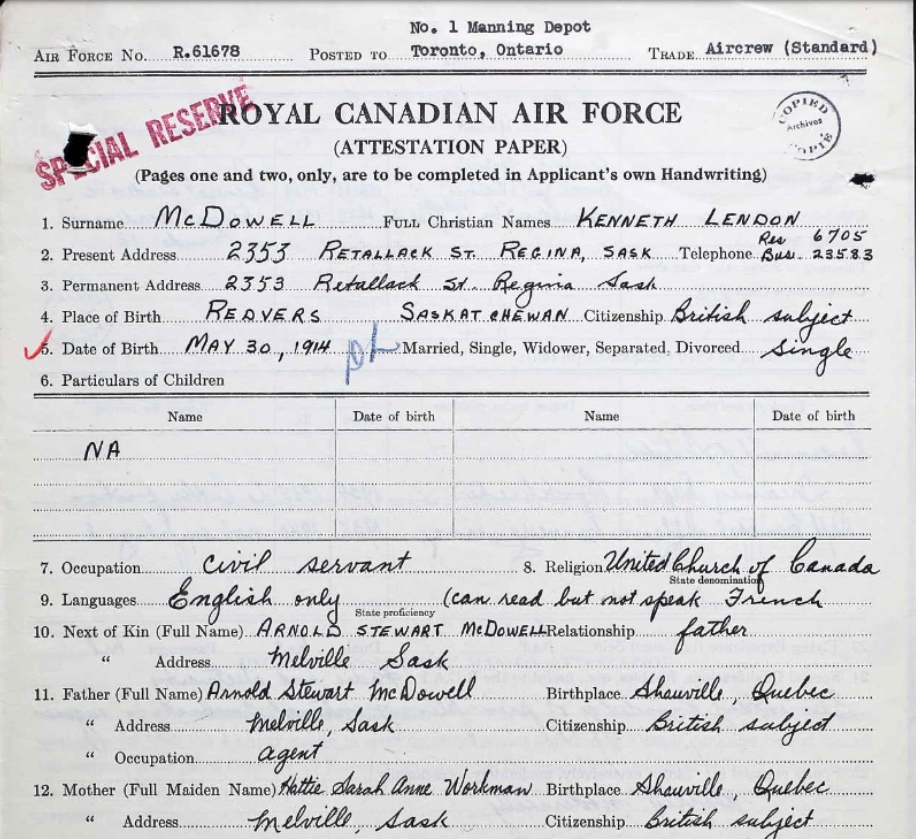 No. 1 Manning Depot
AIR FORCE NO. R.61678 POSTED TO Toronto, Ontario TRADE Aircrew (Standard)
SPECIAL RESERVE
ROYAL CANADIAN AIR FORCE
COPIED Archives COPIE
(ATTESTATION PAPER)
(Pages one and two, only, are to be completed in Applicant's own Handwriting)
1. Surname McDOWELL FULL CHRISTIAN NAMES KENNETH LENDON
Res 6705
2. Present Address 2353 RETALLACK ST. REGINA, SASK Telephone Bus. 23583
3. Permanent Address 2353 Retallack St. Regina Sask
4. Place of Birth REDVERS SASKATCHEWAN Citizenship British subject
5. Date of Birth MAY 30, 1914 Married, Single, Widower, Separated, Divorced single
6. Particulars of Children
Name Date of birth Name Date of birth
NA
7. Occupation civil servant 8. Religion United Church of Canada
State denomination
9. Languages English only (can read but not speak French
State proficiency
10. Next of Kin (Full Name) ARNOLD STEWART McDOWELL Relationship father
" Address Melville Sask
11. Father (Full Name) Arnold Stewart McDowell Birthplace Shauville, Quebec
" Address Melville, Sask Citizenship British subject
" Occupation agent
12. Mother (Full Maiden Name) Hattie Sarah Anne Workman Birthplace Shauville, Quebec
" Address Melville, Sask Citizenship British subject